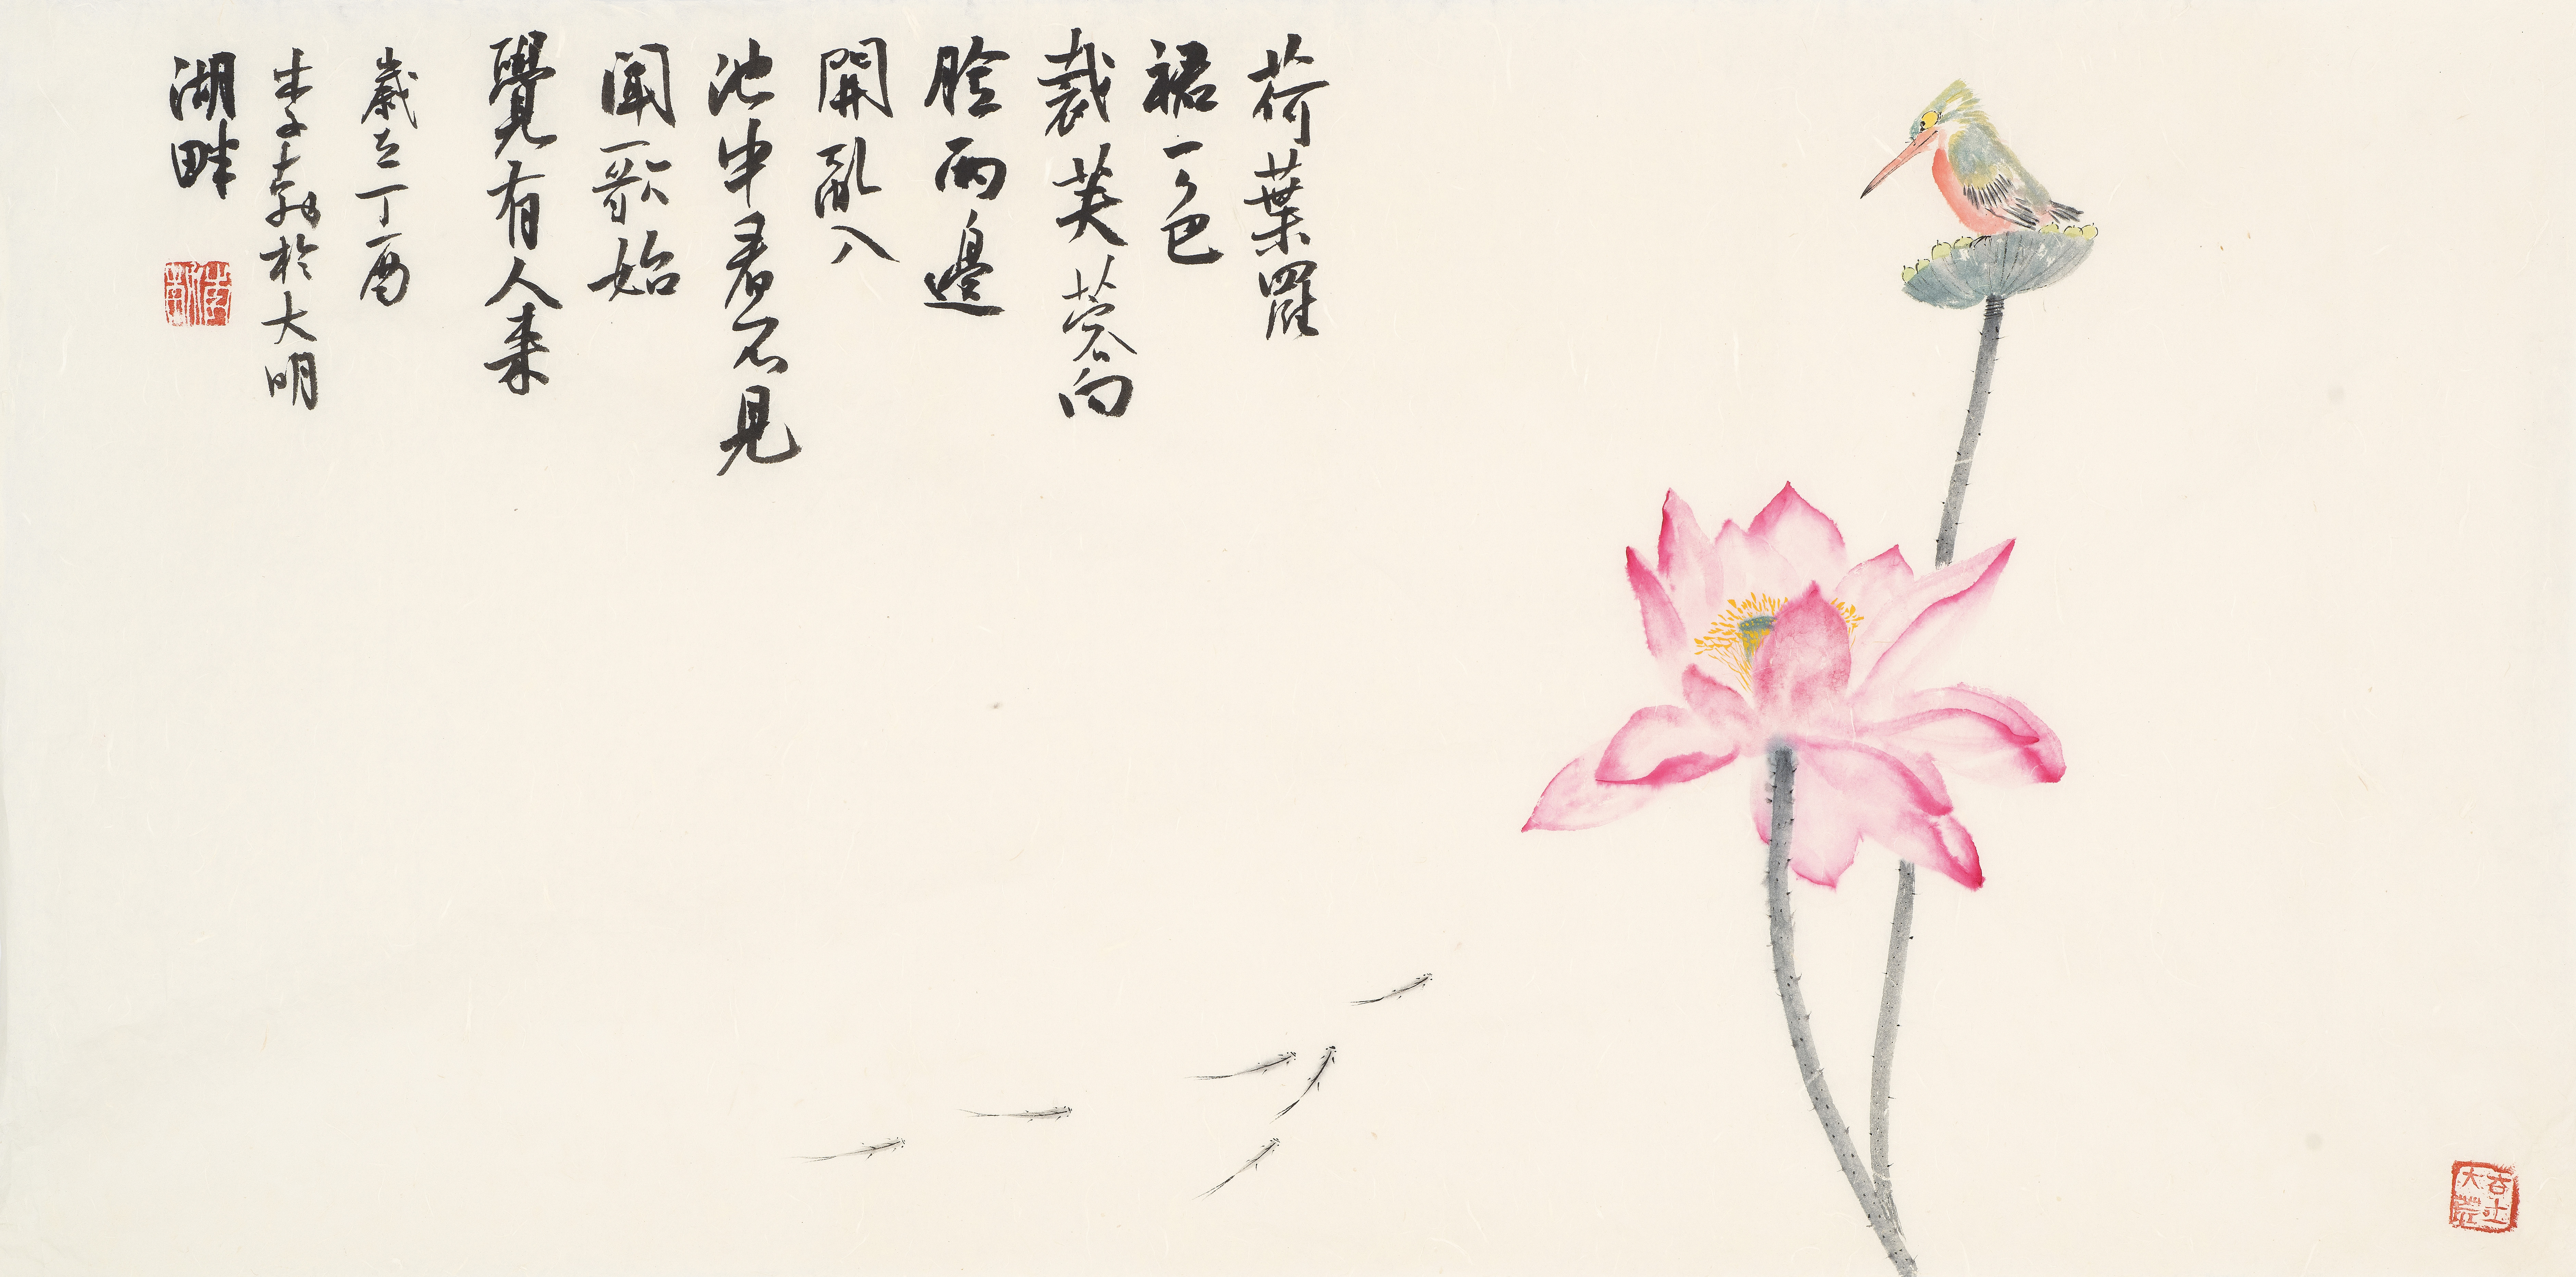 荷葉羅
裙一色
裁芙蓉向
臉兩邊
開亂入
池中看不見
聞歌始
覺有人来
歲在丁酉
李勃於大明
湖畔